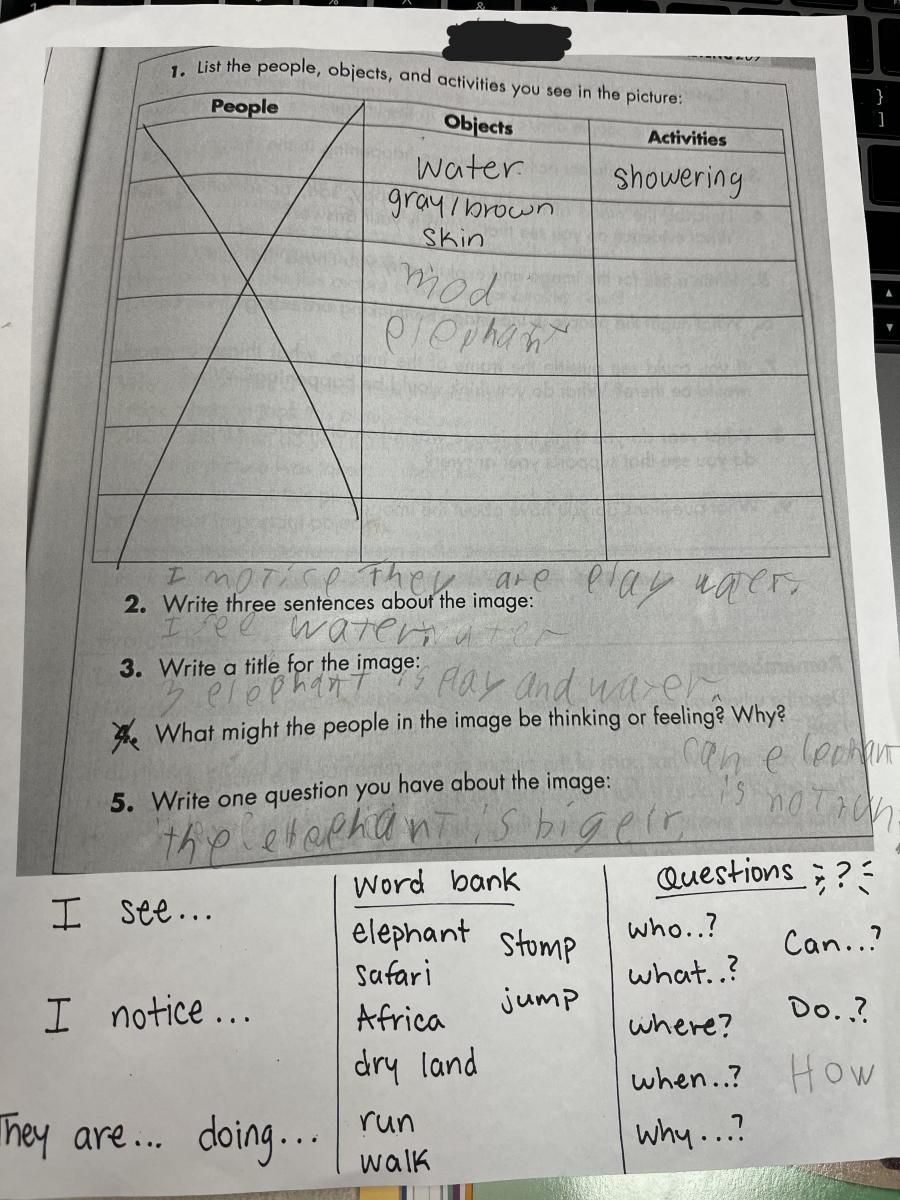 1. List the people, objects, and activities you see in the picture:
People Objects Activities
water showering
gray/brown
skin
mod
elephant
I notice they are play water.
2. Write three sentences about the image:
I see water water
3. Write a title for the image:
3 elephant is play and water
4. What might the people in the image be thinking or feeling? Why?
can elephant
is
5. Write one question you have about the image:
the elephant is bigeir.
I see...
I notice...
They are... doing...
word bank
elephant stomp
safari
jump
Africa
dry land
run
walk
Questions ?
who..?
Can...?
what..?
Do..?
where?
when..? How
why...?